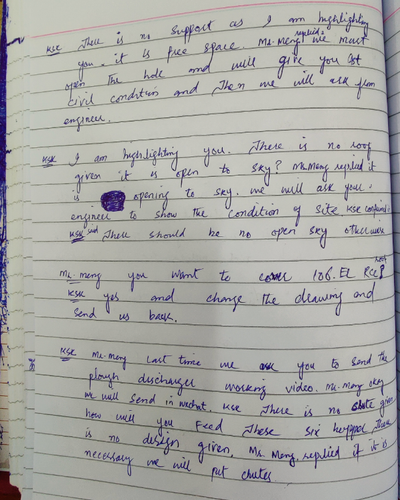 KSE There is no support as I am highlighting
you. it is free space. Mr. Meng replied we must
open the hole and will give you 1st
civil condition and then we will ask from
engineer.
KSE I am highlighting you. There is no roof
given it is open to sky? Mr. Meng replied it
is opening to sky. we will ask your
engineer to show the condition of site KSE
KSE said There should be no open sky otherwise
Mr. Meng you want to cover 106. EL RCC roof?
KSK yes and change the drawing and
send us back.
KSE Mr. Meng last time we ask you to send the
plough discharger working video. Mr. Meng okay
we will send in wechat. KSE There is no given
how will you Feed These six hopper There
is no design given. Mr. Meng. replied if it is
necessary we will put chutes